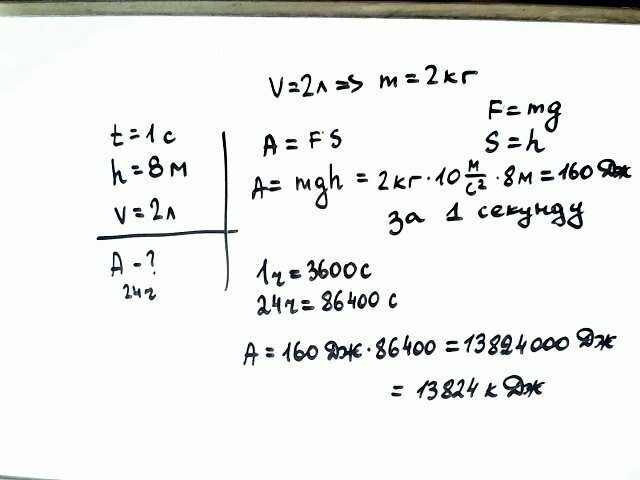 V=2л => m=2кг
t=1с
h=8м
V=2л
A-?
24ч
F=mg
A=F·S
S=h
A=mgh=2кг·10 м/с²·8м=160Дж
за 1 секунду
1ч=3600с
24ч=86400с
A=160Дж·86400=13824000Дж
=13824кДж